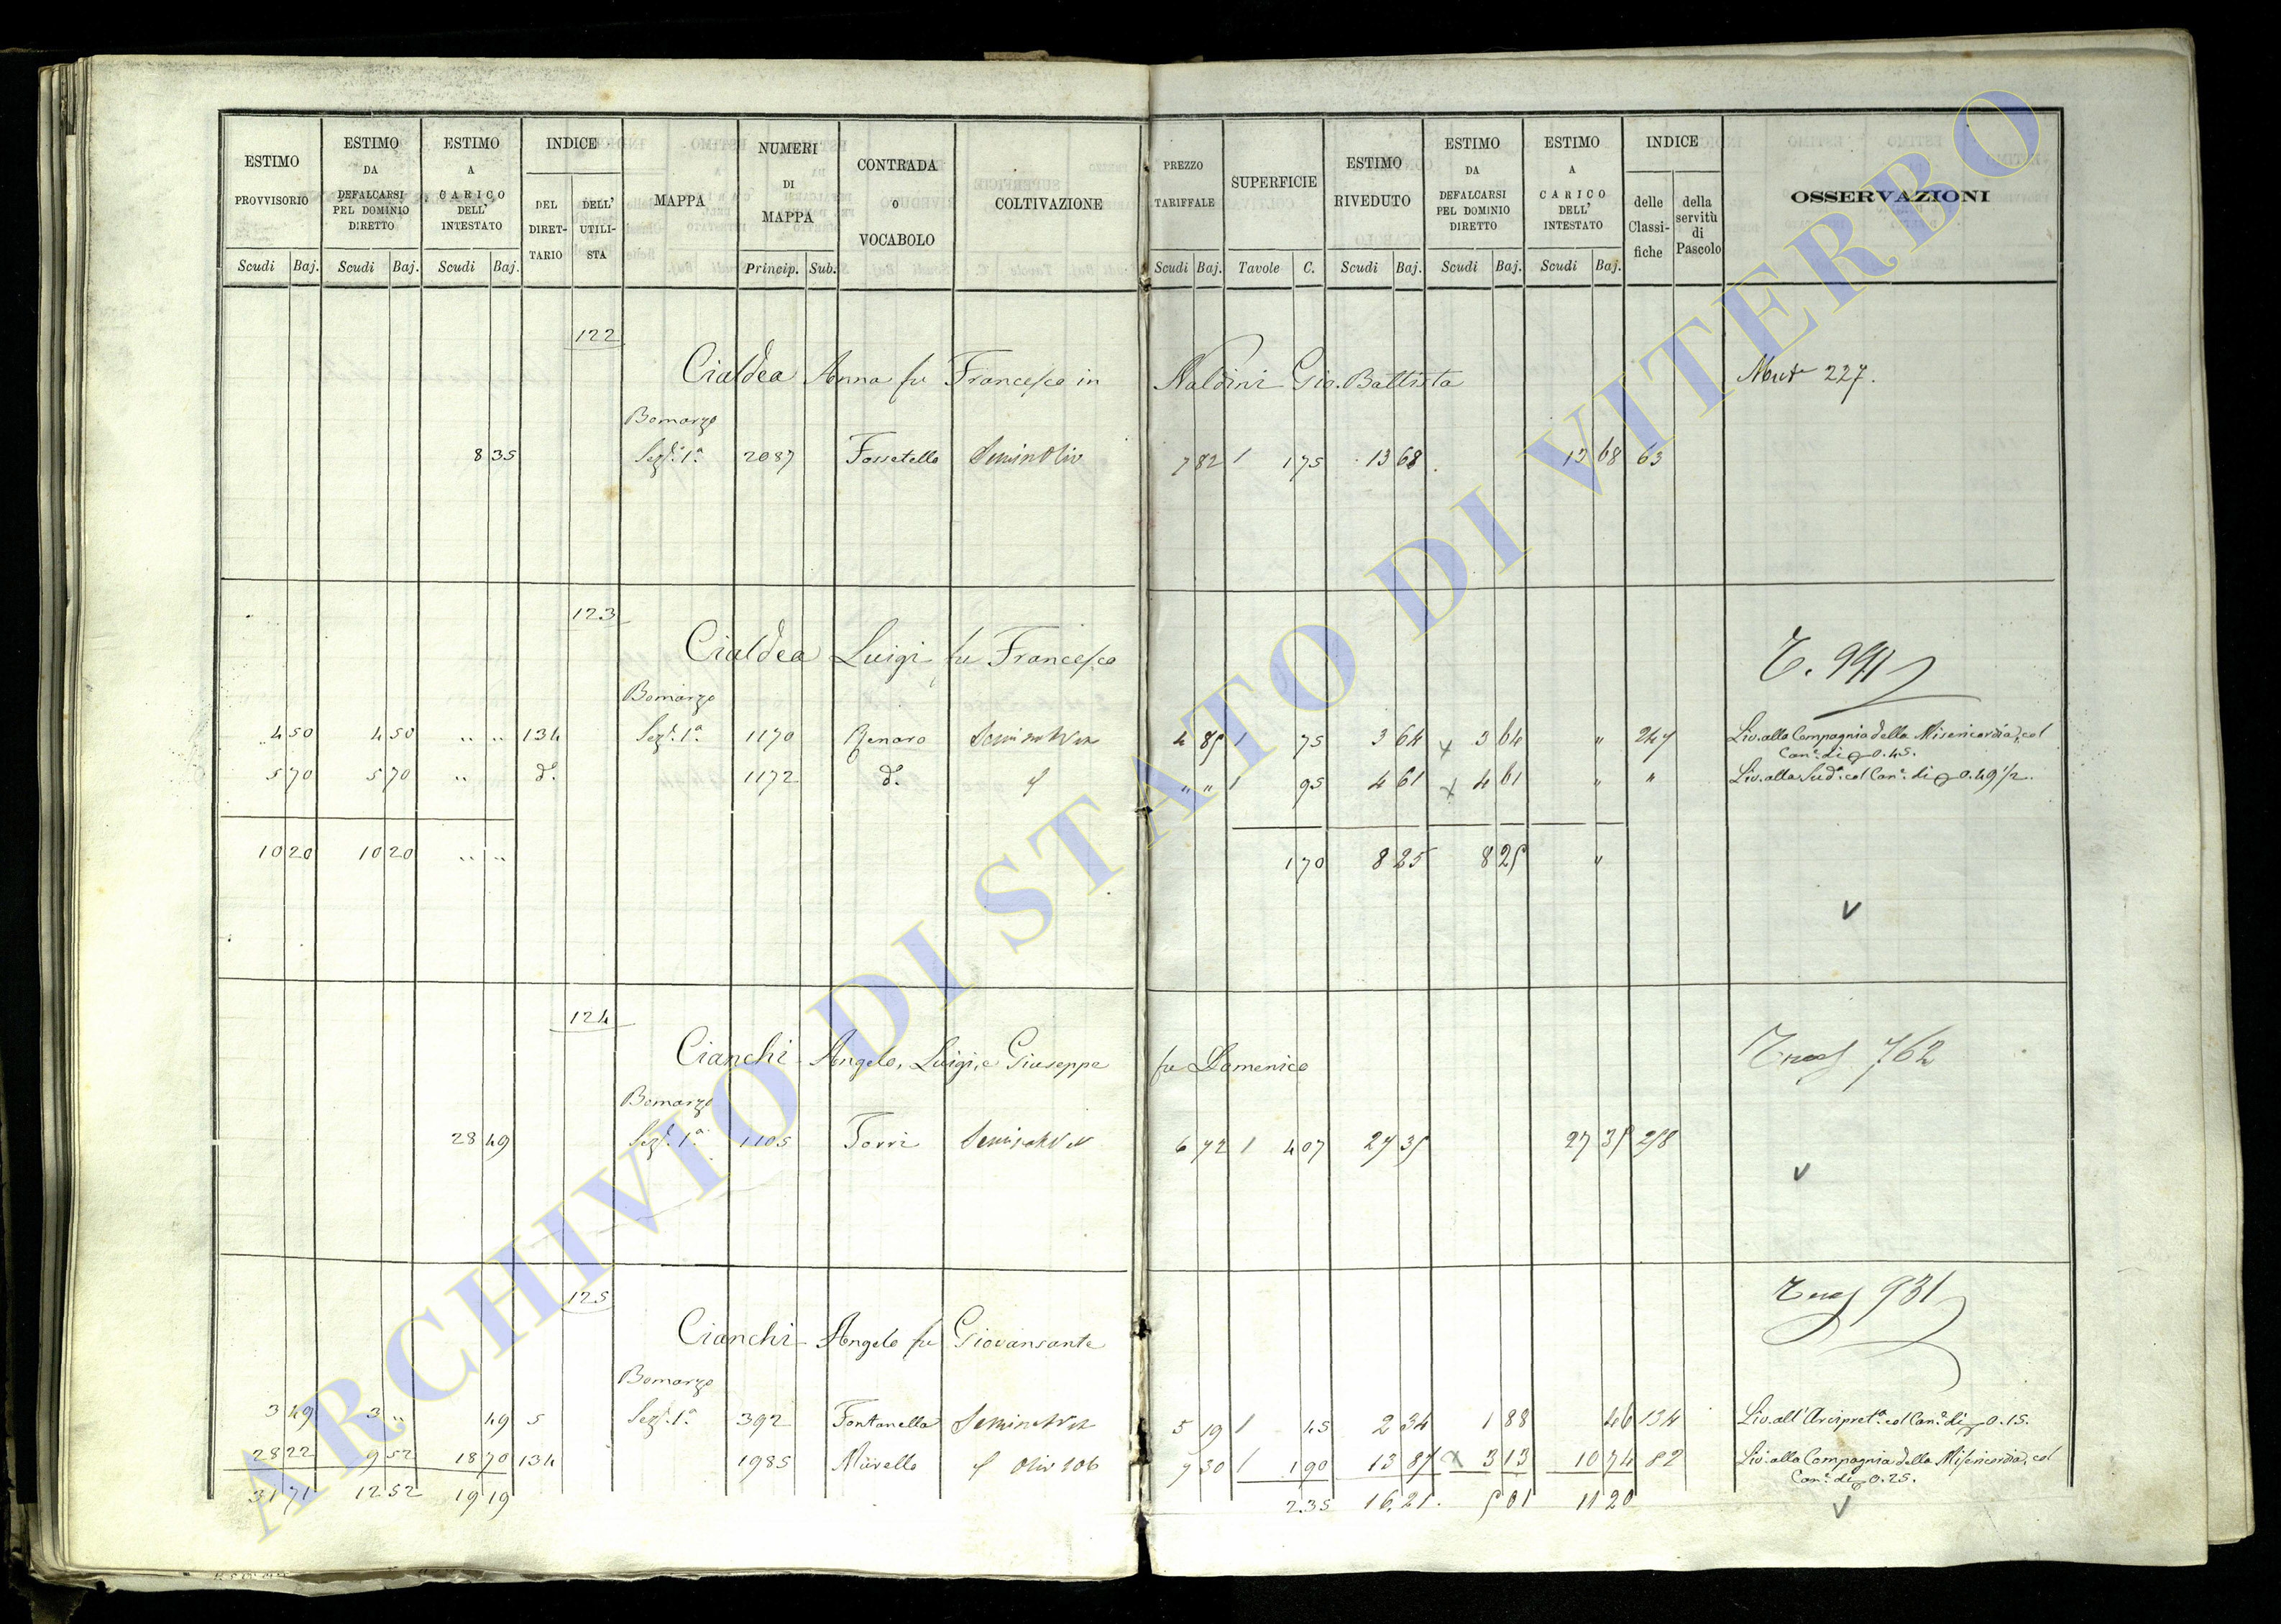 ESTIMO PROVVISORIO | ESTIMO DA DEFALCARSI PEL DOMINIO DIRETTO | ESTIMO A CARICO DELL' INTESTATO | INDICE | MAPPA | NUMERI DI MAPPA | CONTRADA O VOCABOLO | COLTIVAZIONE | PREZZO TARIFFALE | SUPERFICIE | ESTIMO RIVEDUTO | ESTIMO DA DEFALCARSI PEL DOMINIO DIRETTO | ESTIMO A CARICO DELL' INTESTATO | INDICE | OSSERVAZIONI
DEL DIRETTARIO | DELL' UTILISTA | delle Classifiche | della servitù di Pascolo
Scudi Baj. | Scudi Baj. | Scudi Baj. | Princip. Sub. | Scudi Baj. | Tavole C. | Scudi Baj. | Scudi Baj. | Scudi Baj.
122
Cialdea Anna fu Francesco in Naldini Gio. Battista
227.
Bomarzo
8 35 | Sez.e 1.a | 2087 | Fossatello | SeminOliv | 7 82 | 1 75 | 13 68 | 13 68 | 63
123
Cialdea Luigi fu Francesco
Bomarzo
4 50 | 4 50 | " " | 134 | Sez.e 1.a | 1170 | Renaro | 4 85 | 75 | 3 64 | 3 64 | " | 247 | Liv. alla Compagnia della Misericordia, col
Can.e di 0.45.
5 70 | 5 70 | " | d.o | 1172 | d.o | " " | 95 | 4 61 | 4 61 | " | " | Liv. alla Sud.a col Can.e di 0.49 1/2.
10 20 | 10 20 | " " | 1 70 | 8 25 | 8 25 | "
V
124
Cianchi Angelo, Luigi, e Giuseppe fu Domenico
762
Bomarzo
28 49 | Sez.e 1.a | 1105 | Torri | 6 72 | 4 07 | 27 35 | 27 35 | 258
V
125
Cianchi Angelo fu Giovansante
931
Bomarzo
3 49 | 3 " | 49 | 5 | Sez.e 1.a | 392 | Fontanella | 5 19 | 45 | 2 34 | 1 88 | 46 | 134 | Liv. all'Arcipret.a col Can.e di 0.15.
28 22 | 9 52 | 18 70 | 134 | 1985 | Murello | 7 30 | 1 90 | 13 87 | 3 13 | 10 74 | 82 | Liv. alla Compagnia della Misericordia, col
Can.e di 0.25.
31 71 | 12 52 | 19 19 | 2.35 | 16.21 | 5 01 | 11 20
V
ARCHIVIO DI STATO DI VITERBO